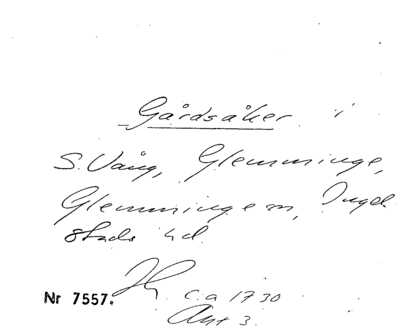 Gårdsåker i
S. Vång, Glemminge,
Glemminge sn, Ingel
stads hd.
Nr 7557. c:a 1730
Akt 3.